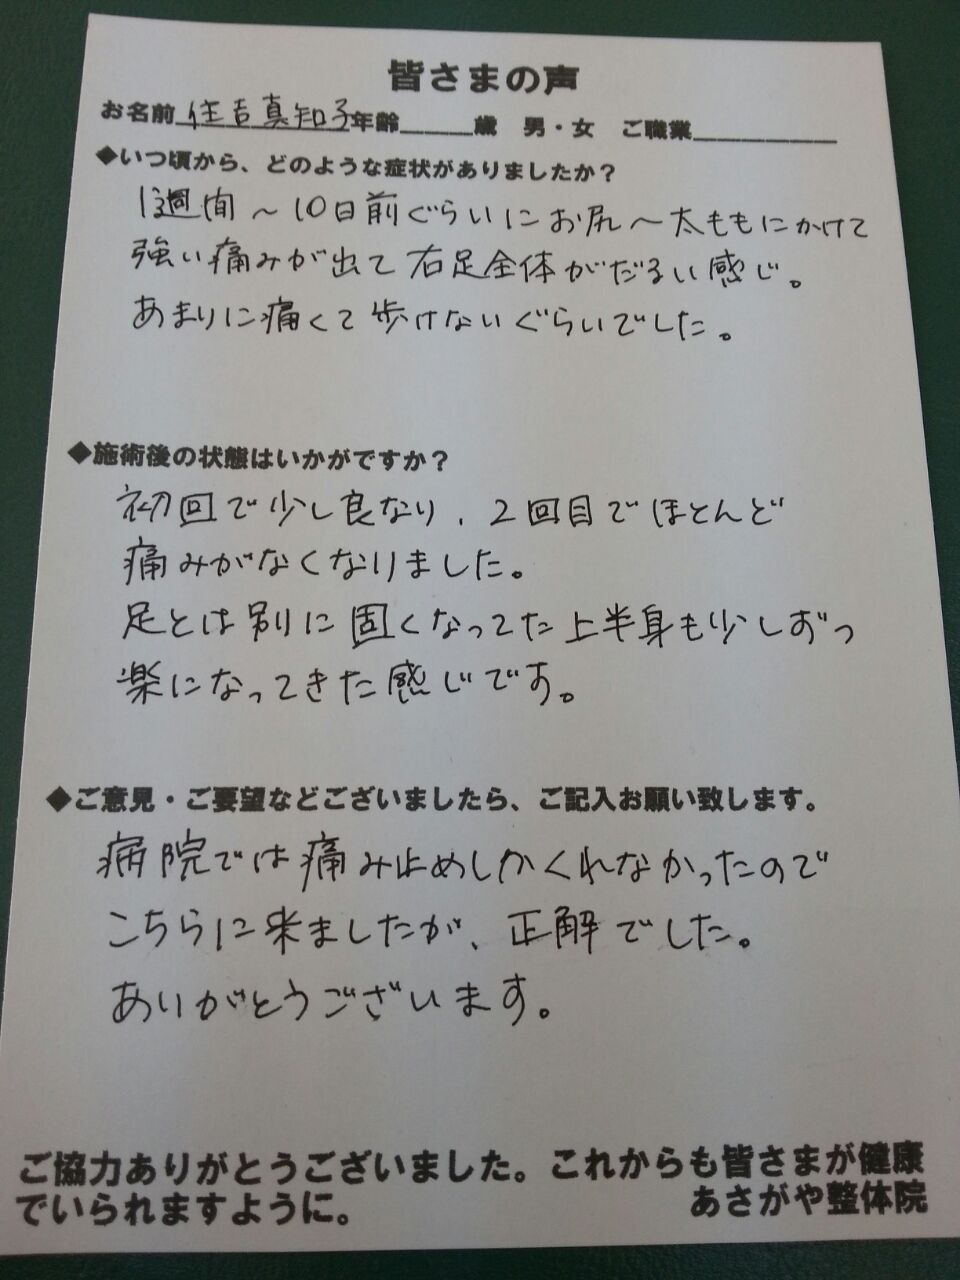 皆さまの声
お名前 住吉真知子 年齢____歳 男・女 ご職業________
◆いつ頃から、どのような症状がありましたか？
1週間～10日前ぐらいにお尻～太ももにかけて
強い痛みが出て右足全体がだるい感じ。
あまりに痛くて歩けないぐらいでした。
◆施術後の状態はいかがですか？
初回で少し良なり、2回目でほとんど
痛みがなくなりました。
足とは別に固くなってた上半身も少しづつ
楽になってきた感じです。
◆ご意見・ご要望などございましたら、ご記入お願い致します。
病院では痛み止めしかくれなかったので
こちらに来ましたが、正解でした。
ありがとうございます。
ご協力ありがとうございました。これからも皆さまが健康
でいられますように。 あさがや整体院